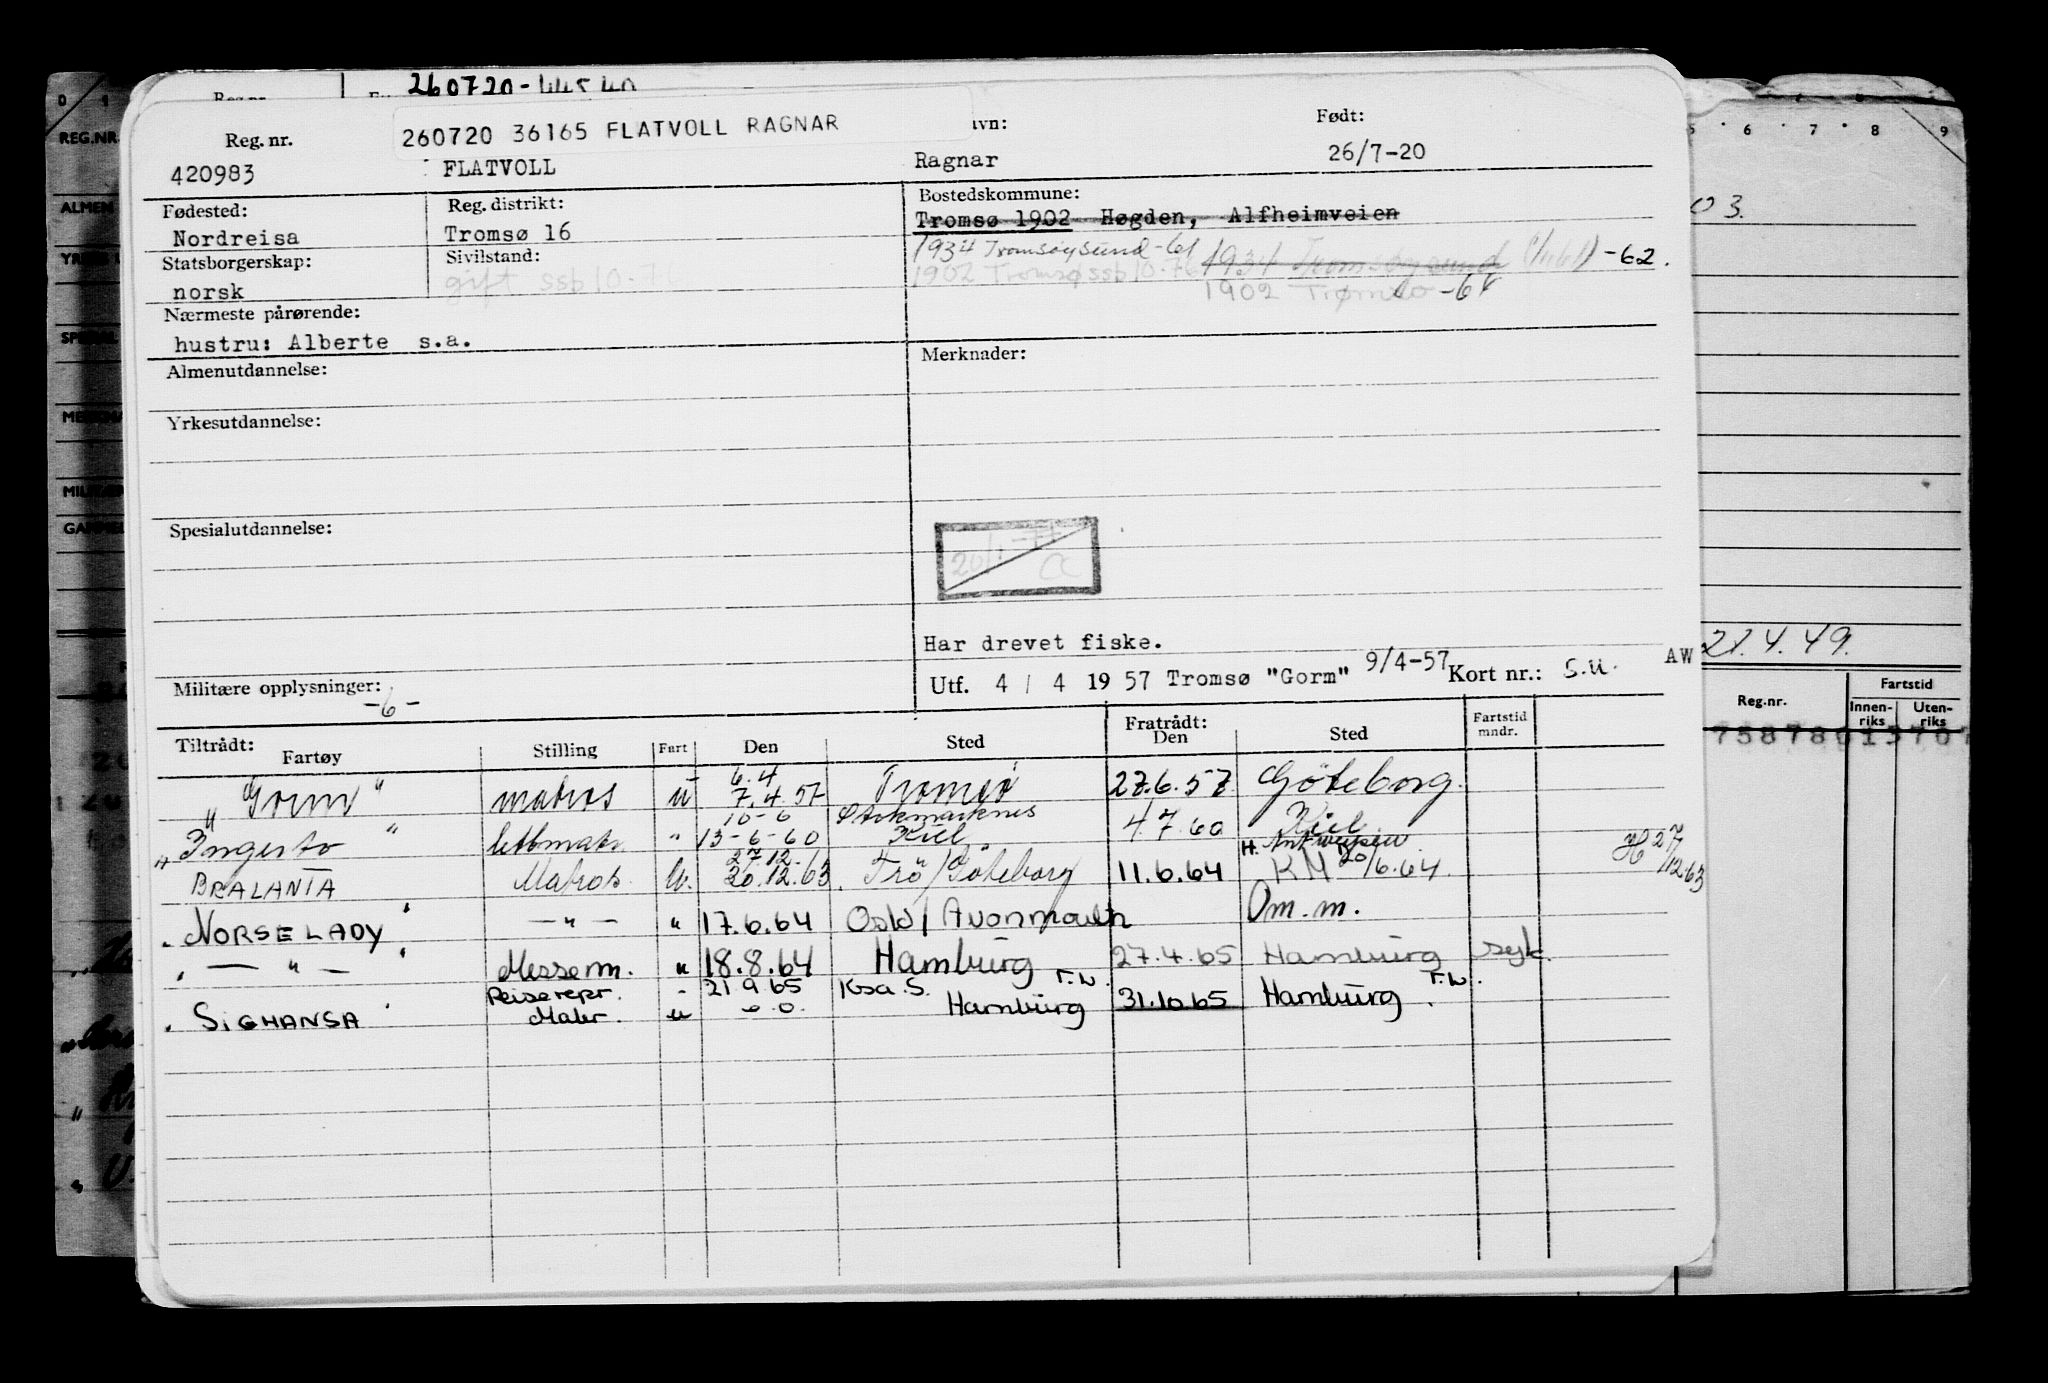 260720-44540
260720 36165 FLATVOLL RAGNAR
Reg. nr. avn: Født:
420983 FLATVOLL Ragnar 26/7-20
Fødested: Reg. distrikt: Bostedskommune:
Nordreisa Tromsø 16 Tromsø 1902 Høgden, Alfheimveien
Statsborgerskap: Sivilstand: 1934 Tromsøysund -61 1934 Tromsøysund -62.
norsk gift ssb 10-76 1902 Tromsø ssb 10-76 1902 Tromsø -64
Nærmeste pårørende:
hustru: Alberte s.a.
Almenutdannelse: Merknader:
Yrkesutdannelse:
Spesialutdannelse:
20/1-77
Har drevet fiske.
Militære opplysninger: Utf. 4 / 4 19 57 Tromsø "Gorm" 9/4-57 Kort nr.: s.u. AW
-6-
Tiltrådt: Fratrådt:
Fartøy Stilling Fart Den Sted Den Sted Fartstid mndr.
6.4
"Gorm" matros u 7.4.57 Tromsø 27.6.57 Göteborg.
10-6 Stokmarknes
"Ingerto" lettmatr. " 13-6-60 Kiel 4.7.60 Kiel
27.12. H. Antwerpen
BRALANTA Matros U. 20.12.63 Trö/Göteborg 11.6.64 KM 20/6.64 H 27/12.63
"NORSE LADY" —"— " 17.6.64 Osl/Avonmouth Om.m.
"—"—" Messem. " 18.8.64 Hamburg 27.4.65 Hamburg syk.
Reiserepr. - 21.9.65 Ksa.S. T.W. T.W.
"SIGHANSA" Matr. u Hamburg 31.10.65 Hamburg
REG.NR.
0 1
5 6 7 8 9
03.
21.4.49.
Reg.nr. Fartstid
Innen-riks Uten-riks